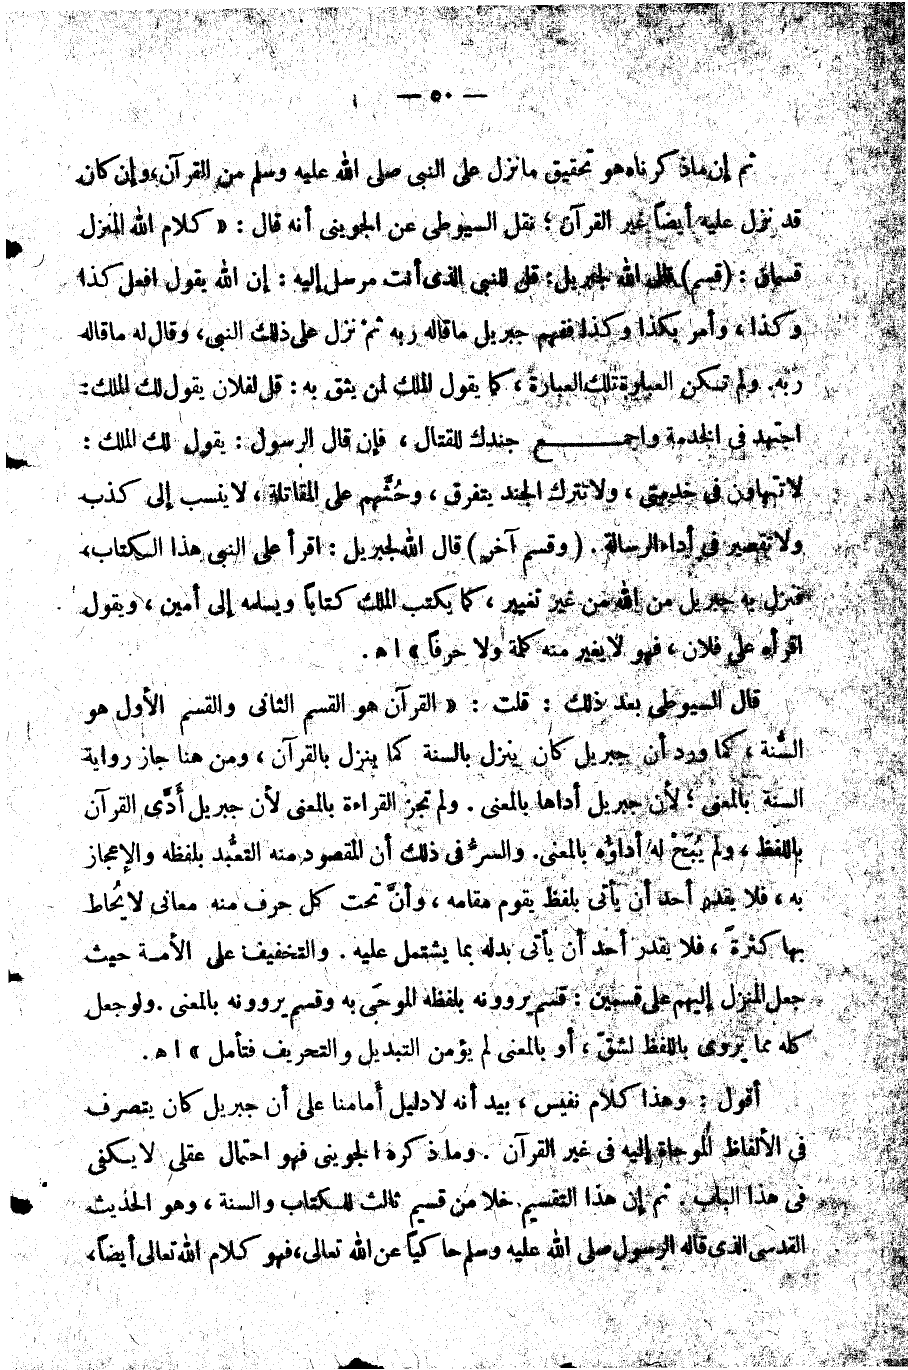 — ٥٠ —
ثم إن ماذكرناه هو تحقيق مانزل على النبى صلى الله عليه وسلم من القرآن، وإن كان
قد نزل عليه أيضاً غير القرآن ؛ نقل السيوطى عن الجوينى أنه قال : « كلام الله المنزل
قسمان : (قسم) قال الله لجبريل : قل للنبى الذى أنت مرسل إليه : إن الله يقول افعل كذا
وكذا ، وأمر بكذا وكذا ففهم جبريل ماقاله ربه ثم نزل على ذلك النبى، وقال له ماقاله
ربه. ولم تكن العبارة تلك العبارة ، كما يقول الملك لمن يثق به : قل لفلان يقول لك الملك :
اجتهد فى الخدمة واجمــــع جندك للقتال ، فإن قال الرسول : يقول لك الملك :
لاتتهاون فى خدمتى ، ولاتترك الجند يتفرق ، وحُثَّهم على المقاتلة ، لاينسب إلى كذب
ولاتقصير فى أداء الرسالة . (وقسم آخر) قال الله لجبريل : اقرأ على النبى هذا الكتاب،
فنزل به جبريل من الله من غير تغيير ، كما يكتب الملك كتاباً ويسلمه إلى أمين ، ويقول
اقرأه على فلان ، فهو لايغير منه كلمة ولا حرفاً » ا ه .
قال السيوطى بعد ذلك : قلت : « القرآن هو القسم الثانى والقسم الأول هو
السُّنة ، كما ورد أن جبريل كان ينزل بالسنة كما ينزل بالقرآن ، ومن هنا جاز رواية
السنة بالمعنى ؛ لأن جبريل أداها بالمعنى . ولم تجز القراءة بالمعنى لأن جبريل أدَّى القرآن
باللفظ ، ولم يُبَحْ له أداؤه بالمعنى. والسر فى ذلك أن المقصود منه التعبُّد بلفظه والإعجاز
به ، فلا يقدر أحد أن يأتى بلفظ يقوم مقامه ، وأنَّ تحت كل حرف منه معانى لايُحاط
بها كثرةً ، فلا يقدر أحد أن يأتى بدله بما يشتمل عليه . والتخفيف على الأمــة حيث
جعل المنزل إليهم على قسمين : قسم يروونه بلفظه الموحَى به وقسم يروونه بالمعنى . ولو جعل
كله مما يروى باللفظ لشقّ ، أو بالمعنى لم يؤمن التبديل والتحريف فتأمل » ا ه .
أقول : وهذا كلام نفيس ، بيد أنه لادليل أمامنا على أن جبريل كان يتصرف
فى الألفاظ الموحاة إليه فى غير القرآن . وماذكره الجوينى فهو احتمال عقلى لايكفى
فى هذا الباب . ثم إن هذا التقسيم خلا من قسيم ثالث للكتاب والسنة ، وهو الحديث
القدسى الذى قاله الرسول صلى الله عليه وسلم حاكياً عن الله تعالى، فهو كلام الله تعالى أيضاً،